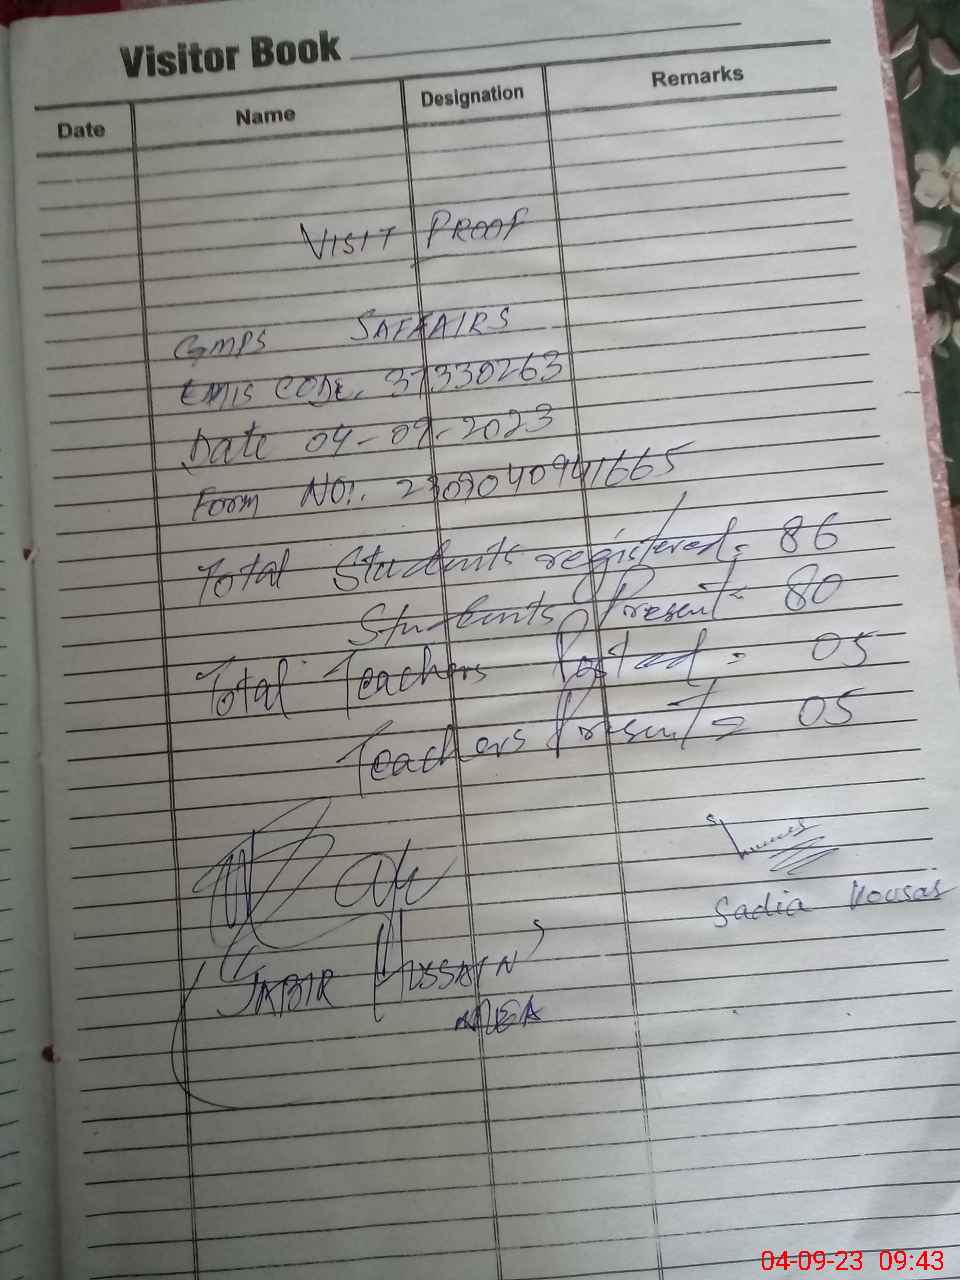 Visitor Book
Date Name Designation Remarks
VISIT PROOF
GMPS SAFFAIRS
EMIS CODE. 37330263
Date 04-09-2023
Form NO:. 2309040941665
Total Students registered = 86
Students Present = 80
Total Teachers Posted = 05
Teachers Present = 05
Sadia Kousar
JABIR HUSSAIN
MEA
04-09-23 09:43